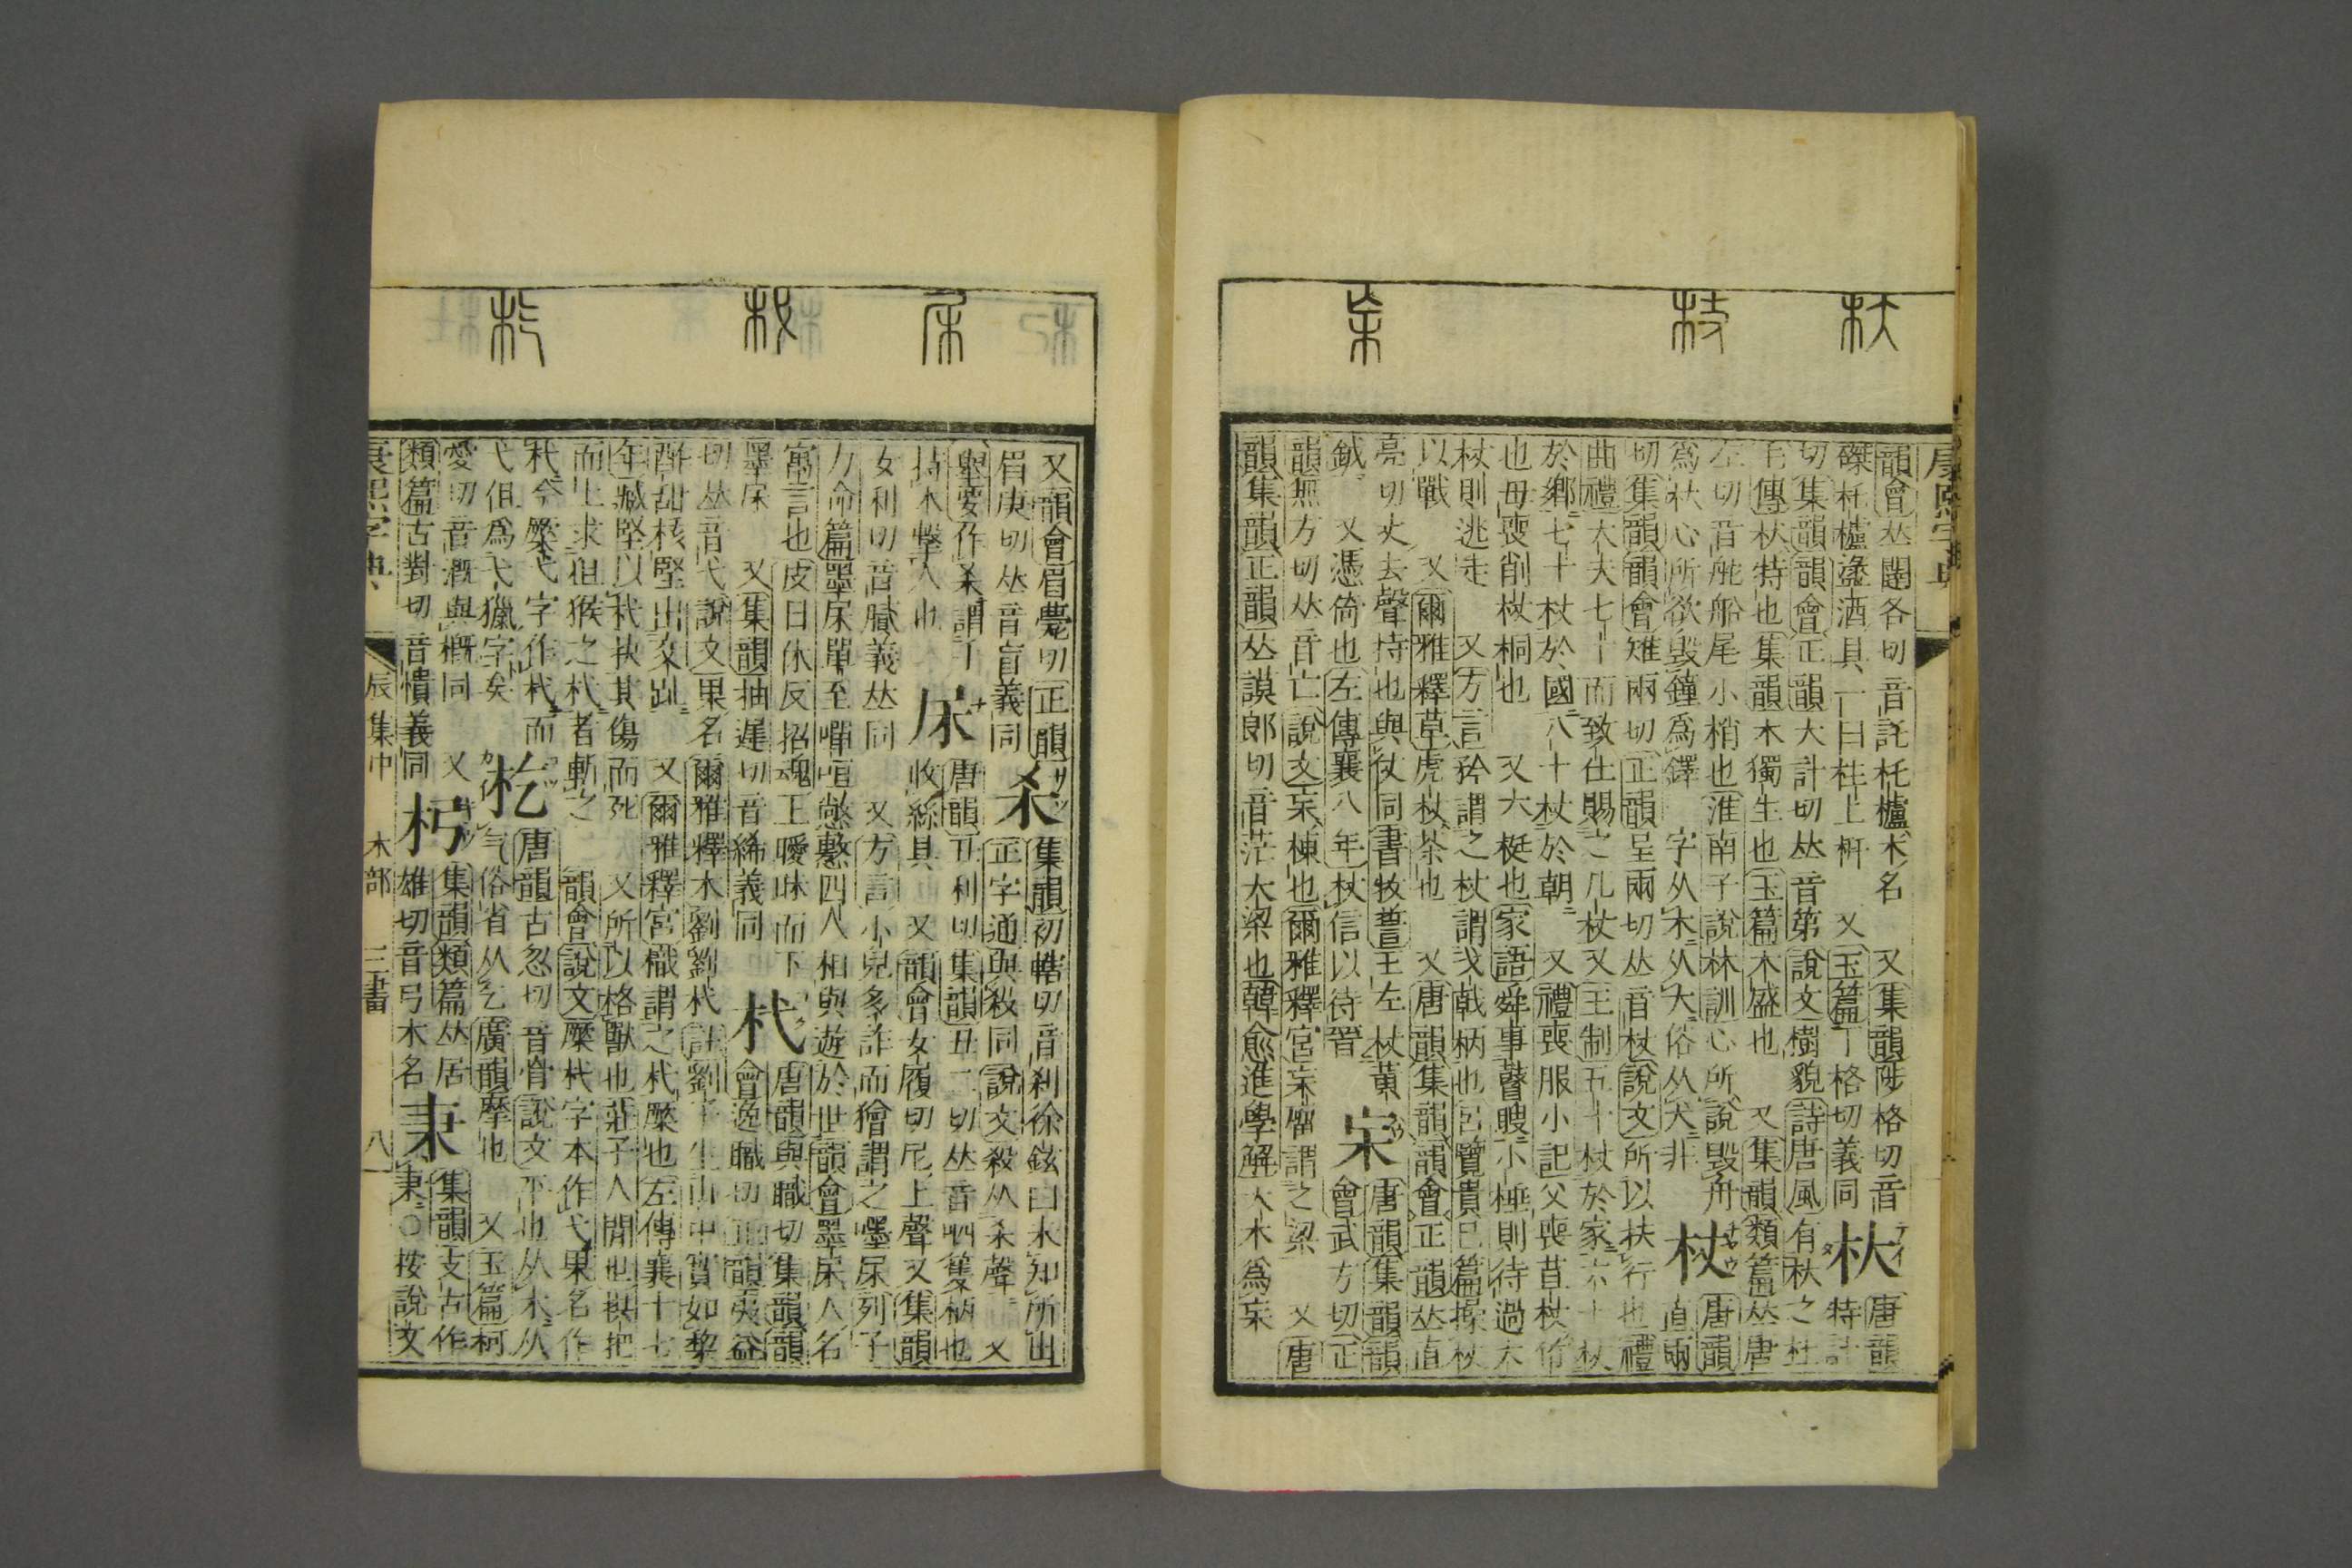 韻會𠀤闥各切音託杔櫨木名　又集韻陟格切音
磔杔櫨盞酒具一曰柱上枅　又玉篇丁格切義同
杕唐韻特計
切集韻韻會正韻大計切𠀤音第說文樹貌詩唐風有杕之杜
毛傳杕特也集韻木獨生也玉篇木盛也　又集韻類篇𠀤唐
左切音舵船尾小梢也淮南子說林訓心所說毀舟
爲杕心所欲毀鐘爲鐸　字从木从大俗从犬非
杖唐韻直兩
切集韻韻會雉兩切正韻呈兩切𠀤音杖說文所以扶行也禮
曲禮大夫七十而致仕賜之几杖又王制五十杖於家六十杖
於鄕七十杖於國八十杖於朝　又禮喪服小記父喪苴杖竹
也母喪削杖桐也　又大梃也家語舜事瞽瞍小棰則待過大
杖則逃走　又方言矜謂之杖謂戈戟柄也呂覽貴已篇操杖
以戰　又爾雅釋草虎杖茶也　又唐韻集韻韻會正韻𠀤直
亮切丈去聲持也與仗同書牧誓王左杖黃
鉞　又憑倚也左傳襄八年杖信以待晉
杗唐韻集韻韻會武方切正
韻無方切𠀤音亡說文杗棟也爾雅釋宮杗廇謂之梁　又唐
韻集韻正韻𠀤謨郎切音茫大梁也韓愈進學解大木爲杗
又韻會眉甍切正韻
眉庚切𠀤音盲義同
㭁集韻初轄切音刹徐鉉曰木知所出
正字通與殺同說文殺从㭁聲　又
舉要作㭁謂丁
持木擊人也
杘唐韻丑利切集韻丑二切𠀤音㘜篗柄也
收絲具　又韻會女履切尼上聲又集韻
女利切音膩義𠀤同　又方言小兒多詐而獪謂之嚜杘列子
力命篇墨杘單至嘽咺憋懯四人相與遊於世韻會墨杘人名
寓言也皮日休反招魂上曖昧而下
墨杘　又集韻抽遲切音絺義同
杙唐韻與職切集韻韻
會逸職切正韻夷益
切𠀤音弋說文果名爾雅釋木劉劉杙註劉子生山中實如棃
酢甜核堅出交趾　又爾雅釋宮樴謂之杙橜也左傳襄十七
年臧堅以杙抉其傷而死　又所以格獸也莊子人閒世拱把
而上求狙猴之杙者斬之　韻會說文橜杙字本作弋果名作
杙今橜弋字作杙而
弋但爲弋獵字矣
杚唐韻古忽切音骨說文平也从木从
气俗省从乞廣韻摩也　又玉篇柯
愛切音漑與概同　又集韻類篇𠀤居
類篇古對切音憒義同
杛雄切音弓木名
𣏌集韻支古作
𣏌○按說文
康熙字典　辰集中　木部　三畫　八